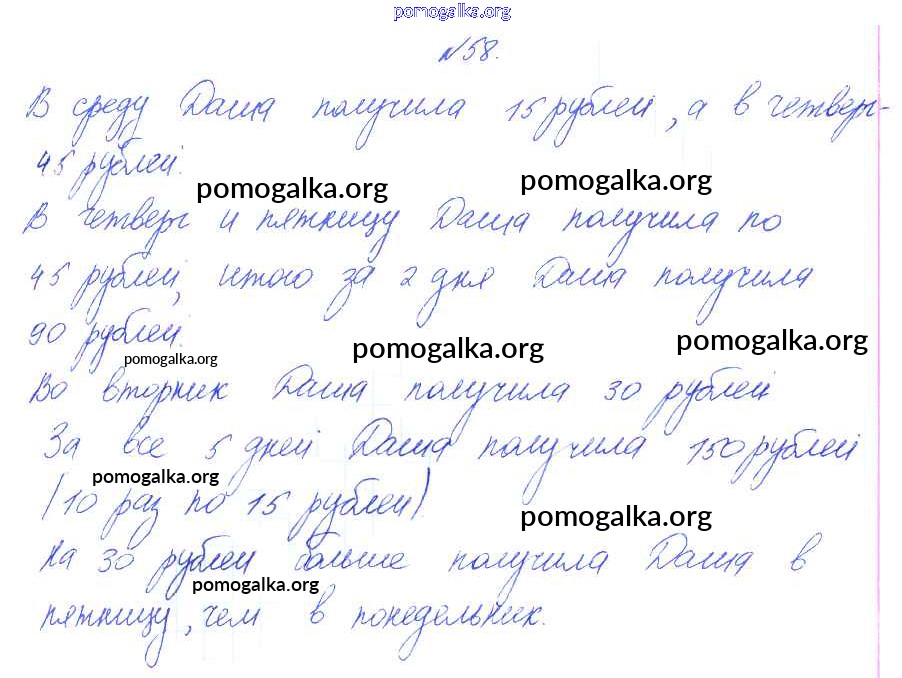 pomogalka.org
№58.
В среду Даша получила 15 рублей, а в четверг-
45 рублей.
pomogalka.org pomogalka.org
В четверг и пятницу Даша получила по
45 рублей, итого за 2 дня Даша получила
90 рублей.
pomogalka.org pomogalka.org pomogalka.org
Во вторник Даша получила 30 рублей
За все 5 дней Даша получила 150 рублей
pomogalka.org
(10 раз по 15 рублей)
pomogalka.org
На 30 рублей больше получила Даша в
pomogalka.org
пятницу, чем в понедельник.